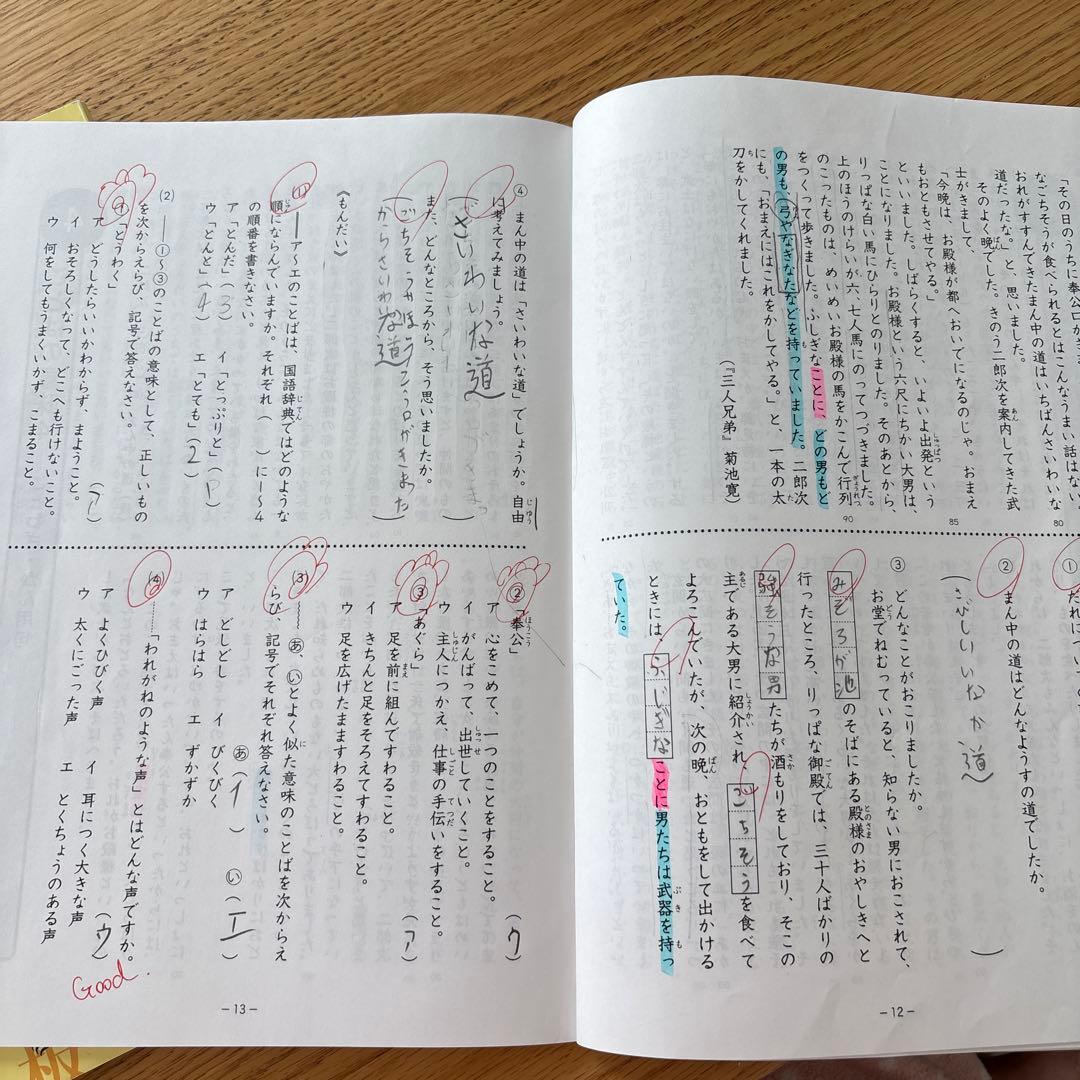 「その日のうちに奉公口が
なごちそうが食べられるとはこんなうまい話はない。
おれがすすんできたまん中の道はいちばんさいわいな
道だったな。」と、思いました。
そのよく晩でした。きのう二郎次を案内してきた武
士がきまして、
「今晩は、お殿様が都へおいでになるのじゃ。おまえ
もおともさせてやる。」
といいました。しばらくすると、いよいよ出発という
ことになりました。お殿様という六尺にちかい大男は、
りっぱな白い馬にひらりとのりました。そのあとから、
上のほうのけらいが六、七人馬にのってつづきました。
のこったものは、めいめいお殿様の馬をかこんで行列
をつくって歩きました。ふしぎなことに、どの男もど
の男も、弓やなぎなたなどを持っていました。二郎次
にも、「おまえにはこれをかしてやる。」と、一本の太
刀をかしてくれました。
（『三人兄弟』菊池寛）
80
85
90
①
②まん中の道はどんなようすの道でしたか。
（さびしいいなか道）
③どんなことがおこりましたか。
お堂でねむっていると、知らない男におこされて、
みぞろが池のそばにある殿様のおやしきへと
行ったところ、りっぱな御殿では、三十人ばかりの
強そうな男たちが酒もりをしており、そこの
主である大男に紹介され、ごちそうを食べて
よろこんでいたが、次の晩、おともをして出かける
ときにはふしぎなことに男たちは武器を持っ
ていた。
－12－
④まん中の道は「さいわいな道」でしょうか。自由
に考えてみましょう。
（さいわいな道）
また、どんなところから、そう思いましたか。
《もんだい》
(1)――ア～エのことばは、国語辞典ではどのような
順にならんでいますか。それぞれ（　）に1～4
の順番を書きなさい。
ア「とんだ」（3）　イ「とっぷりと」（1）
ウ「とんと」（4）　エ「とても」（2）
(2)――①～③のことばの意味として、正しいもの
を次からえらび、記号で答えなさい。
①「とうわく」
ア　どうしたらいいかわからず、まようこと。
イ　おそろしくなって、どこへも行けないこと。
ウ　何をしてもうまくいかず、こまること。
（ア）
②「奉公」
ア　心をこめて、一つのことをすること。
イ　がんばって、出世していくこと。
ウ　主人につかえ、仕事の手伝いをすること。
（ウ）
③「あぐら」
ア　足を前に組んですわること。
イ　きちんと足をそろえてすわること。
ウ　足を広げたまますわること。
（ア）
(3)〰〰あ、いとよく似た意味のことばを次からえ
らび、記号でそれぞれ答えなさい。
あ（イ）　い（エ）
ア　どしどし　イ　びくびく
ウ　はらはら　エ　ずかずか
(4)………「われがねのような声」とはどんな声ですか。
（ウ）
ア　よくひびく声　イ　耳につく大きな声
ウ　太くにごった声　エ　とくちょうのある声
Good.
－13－